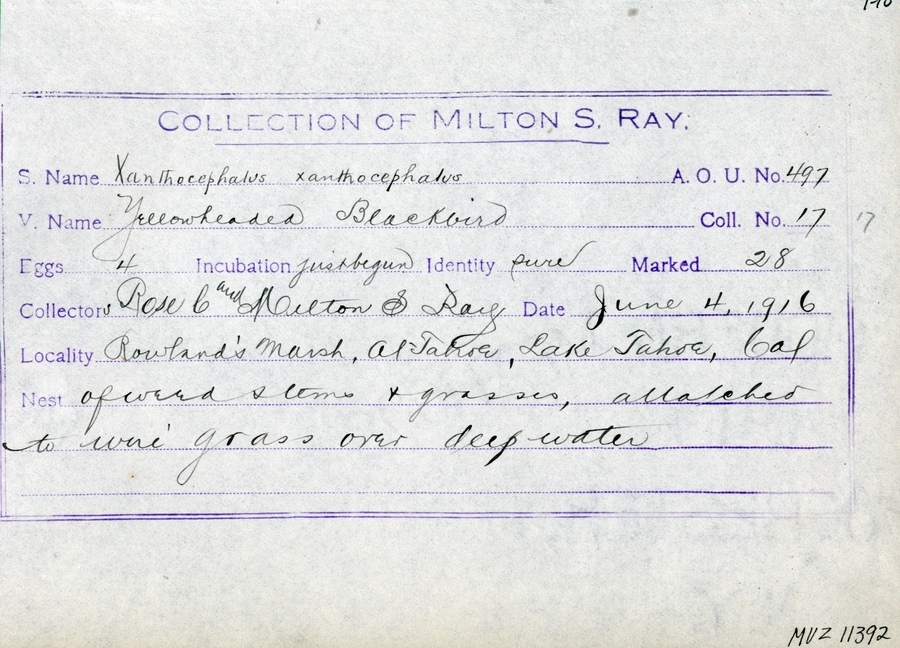 COLLECTION OF MILTON S. RAY.
S. Name Xanthocephalus xanthocephalus A. O. U. No. 497
V. Name Yellowheaded Blackbird Coll. No. 17 17
Eggs 4 Incubation just begun Identity sure Marked 28
Collectors Rose C and Milton S Ray Date June 4, 1916
Locality Rowland's Marsh, Al Tahoe, Lake Tahoe, Cal
Nest of weed stems & grasses, attatched
to wire grass over deep water
MVZ 11392